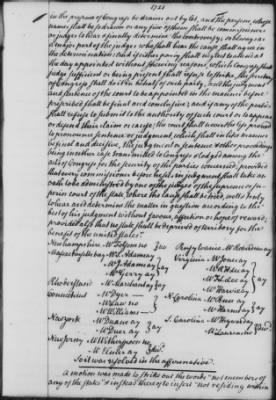 1721
in the presence of Congress be drawn out by lot, and the persons whose
names shall be so drawn or any five of them shall be commissioners
or judges to hear & finally determine the controversy; so always as a
major part of the judges who shall hear the cause shall agree in
the determination; and if either party shall neglect to attend at
the day appointed without shewing reasons, which Congress shall
judge sufficient or being present shall refuse to strike, the
of Congress shall do it in behalf of such party; and the judgment
and sentence of the court to be appointed in the manner before
prescribed shall be final and conclusive; and if any of the parties
shall refuse to submit to the authority of such court or to appear
or defend their claim or cause, the court shall nevertheless proceed
to pronounce sentence or judgment, which shall in like manner
be final and decisive, the judgment or sentence & other proceedings
being in either case transmitted to Congress & lodged among the
acts of Congress for the security of the parties concerned; provided
that every commissioner before he sits in judgment shall take an
oath to be administered by one of the judges of the supreme or superior
court of the state, where the cause shall be tried, well & truly
to hear and determine the matter in question according to the
best of his judgment without favour, affection or hope of reward;
provided also that no state shall be deprived of territory for the
benefit of the united states
Newhampshire Mr Folsom no
Massachusetts bay Mr S Adams ay
Mr J Adams ay
Mr Gerry ay
ay
Rhode island Mr Marchant ay
Connecticut Mr Dyer
Mr Law no
Mr Williams
New york Mr Duane ay
Mr Duer ay
ay
New Jersey Mr Witherspoon no
Mr ay
Pensylvania Mr Roberdeau ay
Virginia Mr Jones ay
Mr F L Lee ay
Mr R H Lee ay
Mr Harvie ay
ay
N Carolina Mr Penn ay
Mr Harnett ay
ay
S Carolina Mr Heyward ay
Mr Laurens no
So it was resolved in the affirmative.
A motion was made to strike out the words "not members of
any of the states" & instead thereof to insert "not residing within